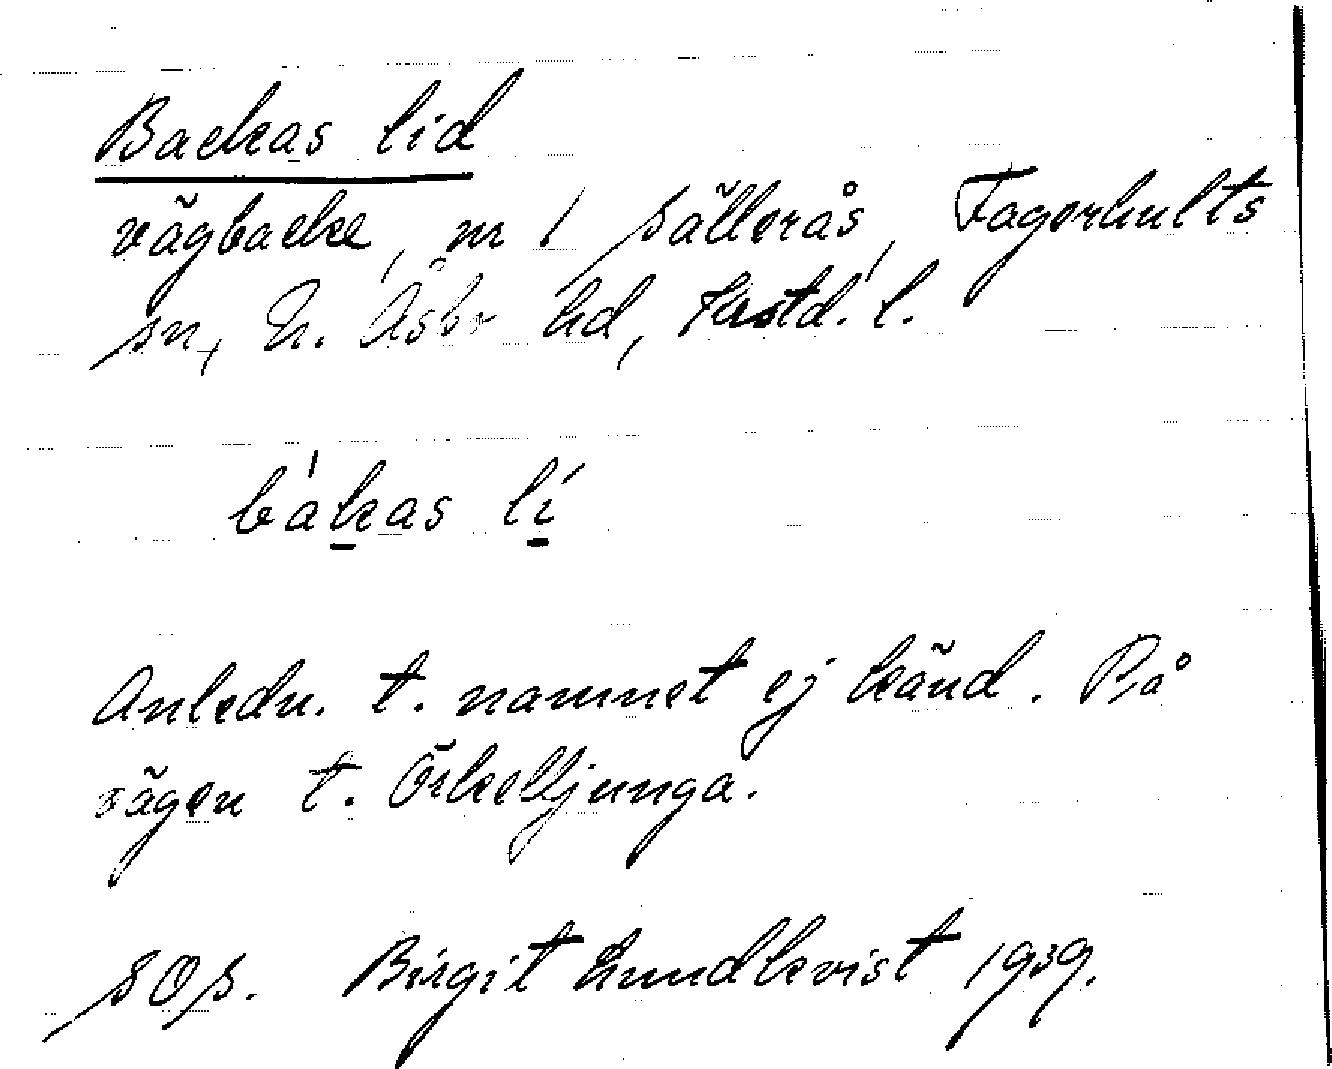 Backas lid
vägbacke, nr 1 Sällerås, Fagerhults
sn, N. Åsbo hd, Kristd. l.
bákas lí
Anledn. t. namnet ej känd. På
vägen t. Örkelljunga.
SOS. Birgit Lundkvist 1939.